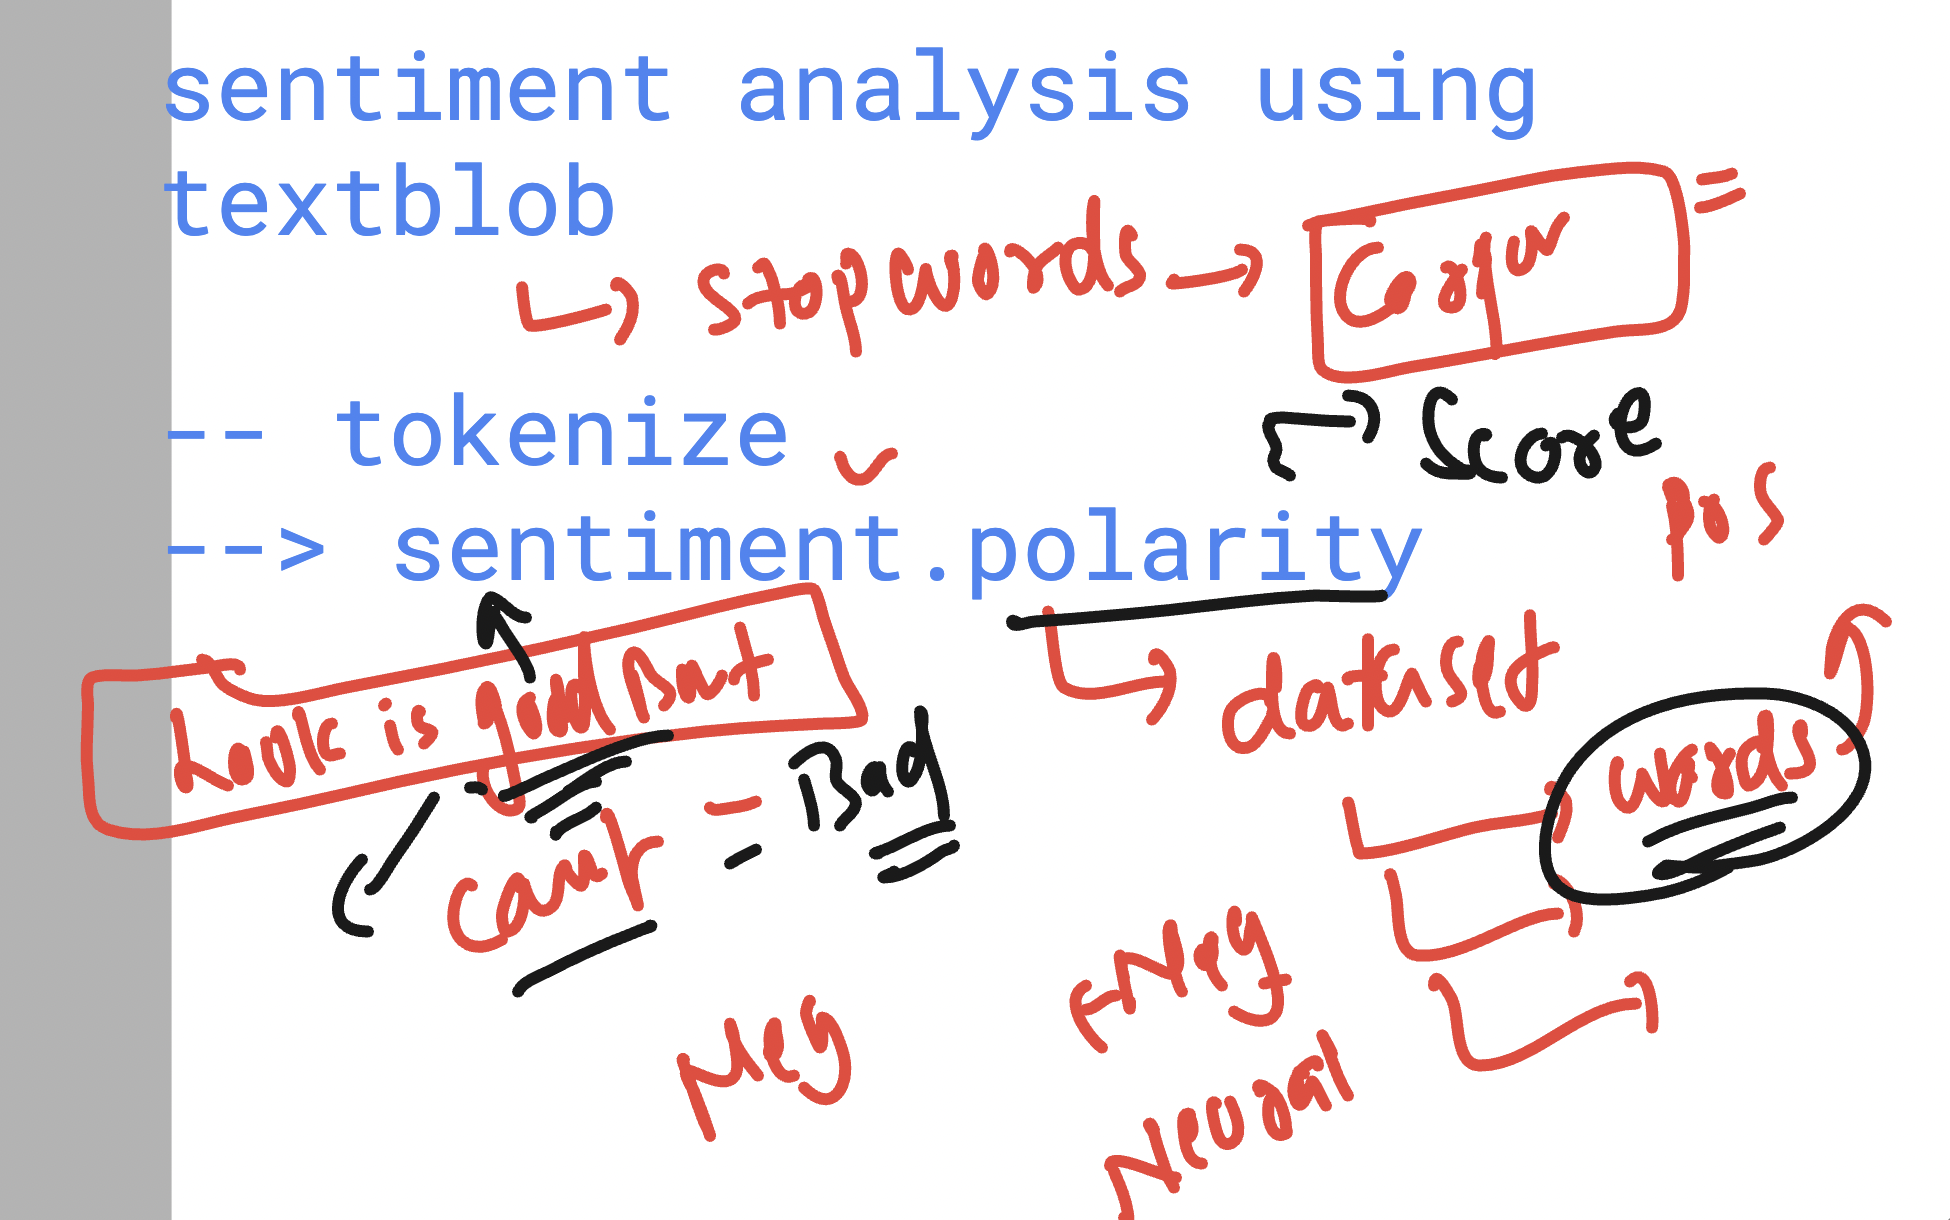 sentiment analysis using
textblob
stopwords
-- tokenize
Score
--> sentiment.polarity
Pos
Look is good But
dataset
words
Bad
Neg
Neg
Neural